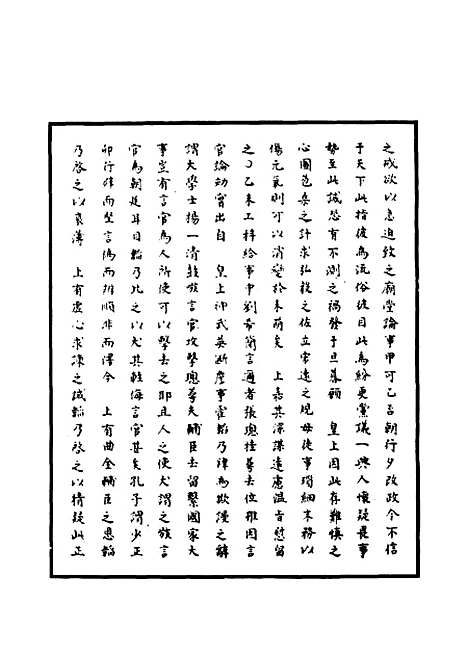 之成欲以急迫致之廟堂論事甲可乙否朝行夕改政令不信
于天下此指彼為流俗彼目此為紛更黨議一興人懷疑畏事
勢至此誠恐有不測之禍發于旦暮願 皇上因此存難慎之
心圖苞桑之計求弘毅之佐立常遠之規毋徒事瑣細末務以
傷元氣則可以消變於未萌矣 上嘉其深謀遠慮溫旨慰留
之○乙未工科給事中劉希簡言邇者張璁桂萼去位雖因言
官論劾實出自 皇上神武英斷摩事霍韜乃肆為欺謾之辭
謂大學士楊一清鼓族言官攻擊璁萼夫輔臣去留繫國家大
事豈有言官為人所使可以擊去之耶且人之使犬謂之族言
官為朝廷耳目韜乃比之以犬其輕侮言官甚矣孔子謂少正
卯行辟而堅言偽而辨順非而澤今 上有曲全輔臣之恩韜
乃啓之以真薄 上有虛心求諫之誠韜乃啓之以猜疑此正